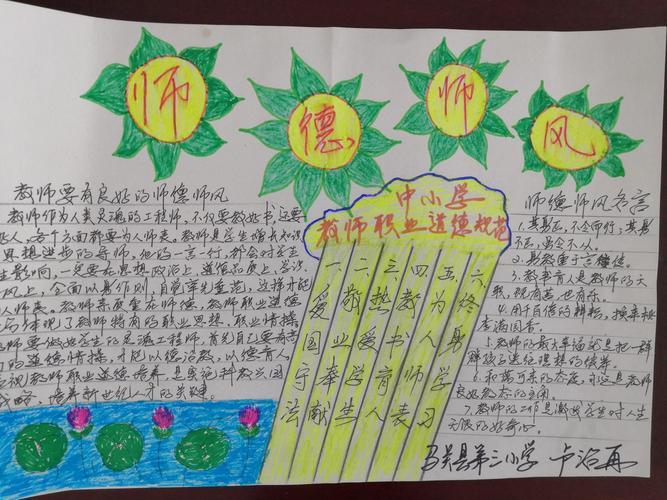 师德师风
教师要有良好的师德师风
教师作为人类灵魂的工程师，不仅要教好书，还要
人，各个方面都要为人师表。教师是学生增长知识
思想进步的导师，他的一言一行，都会对学生
生影响，一定要在思想政治上、道德品质上、学识
风上，全面以身作则，自觉率先垂范，这样才能
人师表。教师素质重在师德。教师职业道德
体现了教师特有的职业思想、职业情操
师要做好学生的灵魂工程师，首先自己要有高
的道德情操，才能以德治教，以德育人
视教师职业道德培养，是实施科教兴国
战略、培养新世纪人才的关键。
中小学
教师职业道德规范
一、爱国守法
二、敬业奉献
三、热爱学生
四、教书育人
五、为人师表
六、终身学习
师德师风名言
1.其身正，不令而行，其身
不正，虽令不从。
2.身教重于言传。
3.教书育人是教师的天
职，既有苦，也有乐。
4.用千百倍的耕耘，换来桃
李满园香。
5.教师的最大幸福就是把一群
群孩子送往理想的彼岸。
6.和蔼可亲的态度，永远是教师
良好教态的
7.教师的工作是激发学生对人生
无限的好奇心。
马关县第三小学